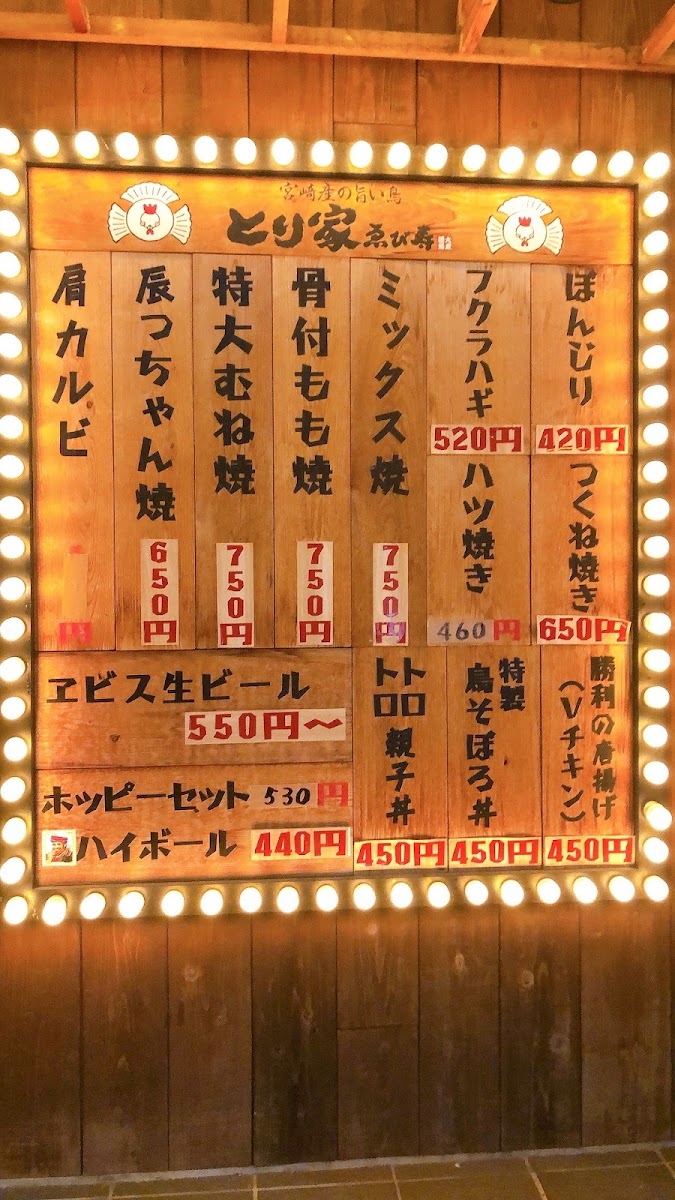 宮崎産の旨い鳥
とり家 ゑび寿
ぼんじり
420円
つくね焼き
650円
フクラハギ
520円
ハツ焼き
460円
ミックス焼
750円
骨付もも焼
750円
特大むね焼
750円
辰っちゃん焼
650円
肩カルビ
円
勝利の唐揚げ
(Vチキン)
450円
特製
鳥そぼろ丼
450円
トロトロ親子丼
450円
ヱビス生ビール
550円～
ホッピーセット 530円
ハイボール 440円